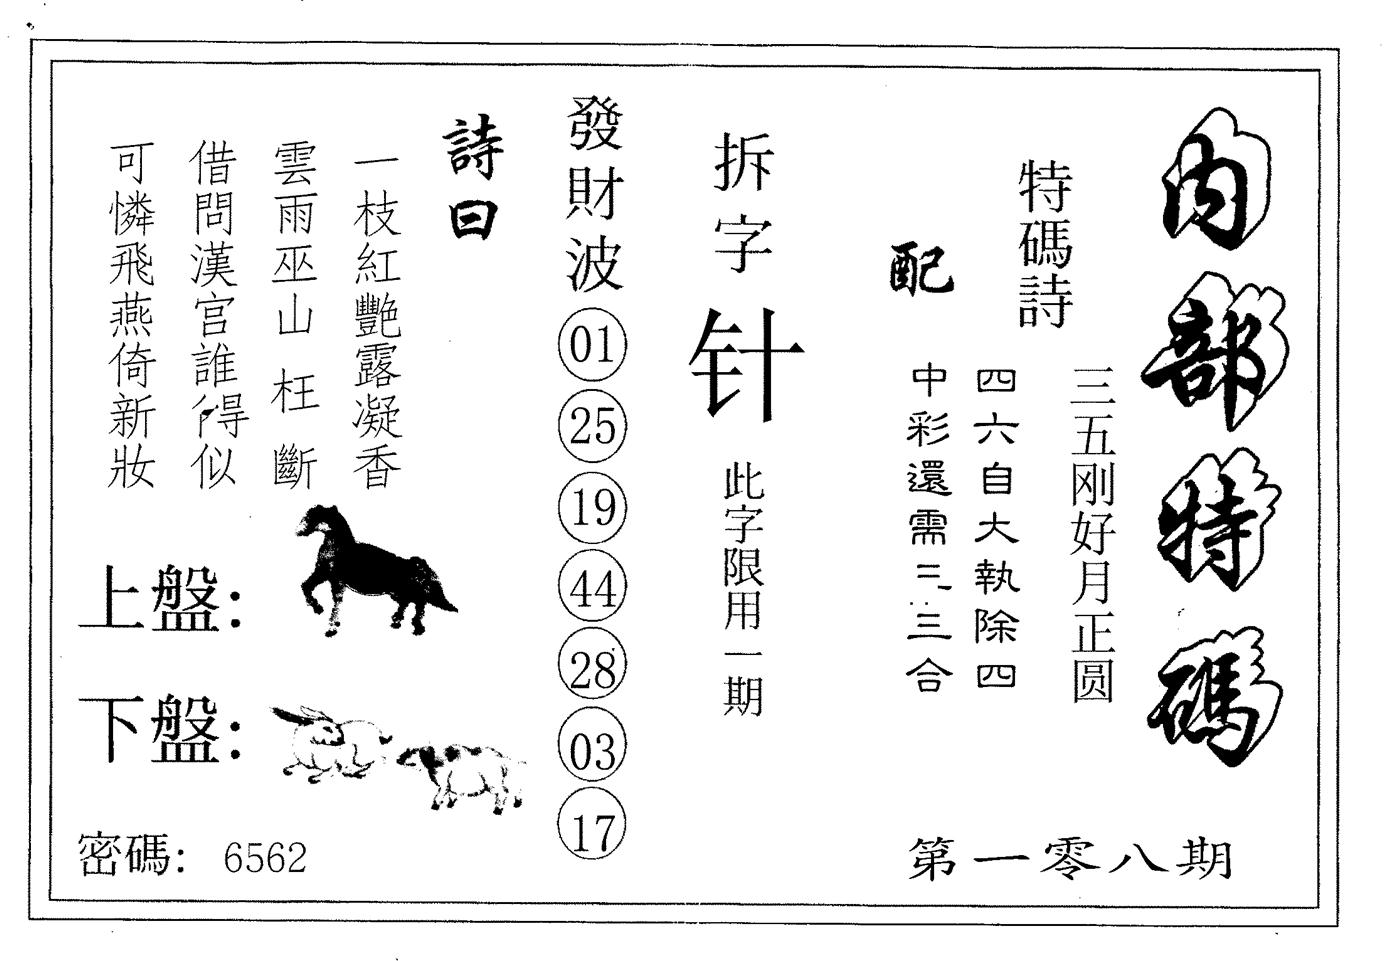 内部特碼
特碼詩
三五刚好月正圆
配
四六自大執除四
中彩還需二三合
拆字
针
此字限用一期
發財波
01
25
19
44
28
03
17
詩曰
一枝紅艷露凝香
雲雨巫山枉斷
借問漢宮誰得似
可憐飛燕倚新妝
上盤：
下盤：
密碼：6562
第一零八期